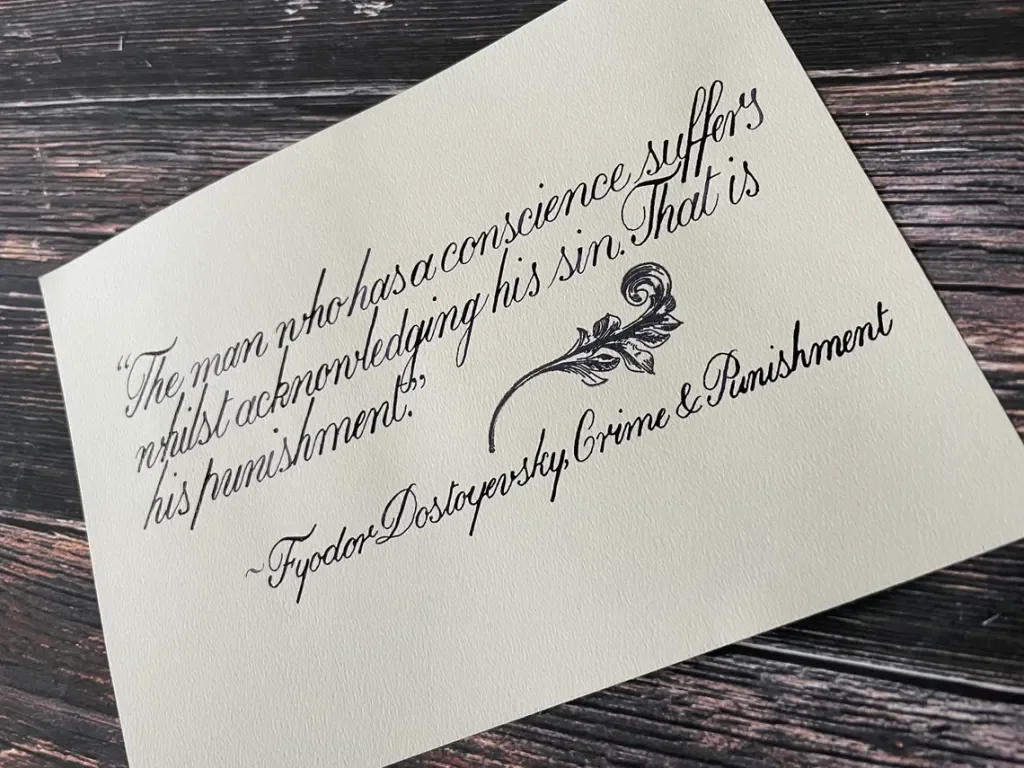 “The man who has a conscience suffers
whilst acknowledging his sin. That is
his punishment.”
~Fyodor Dostoyevsky, Crime & Punishment